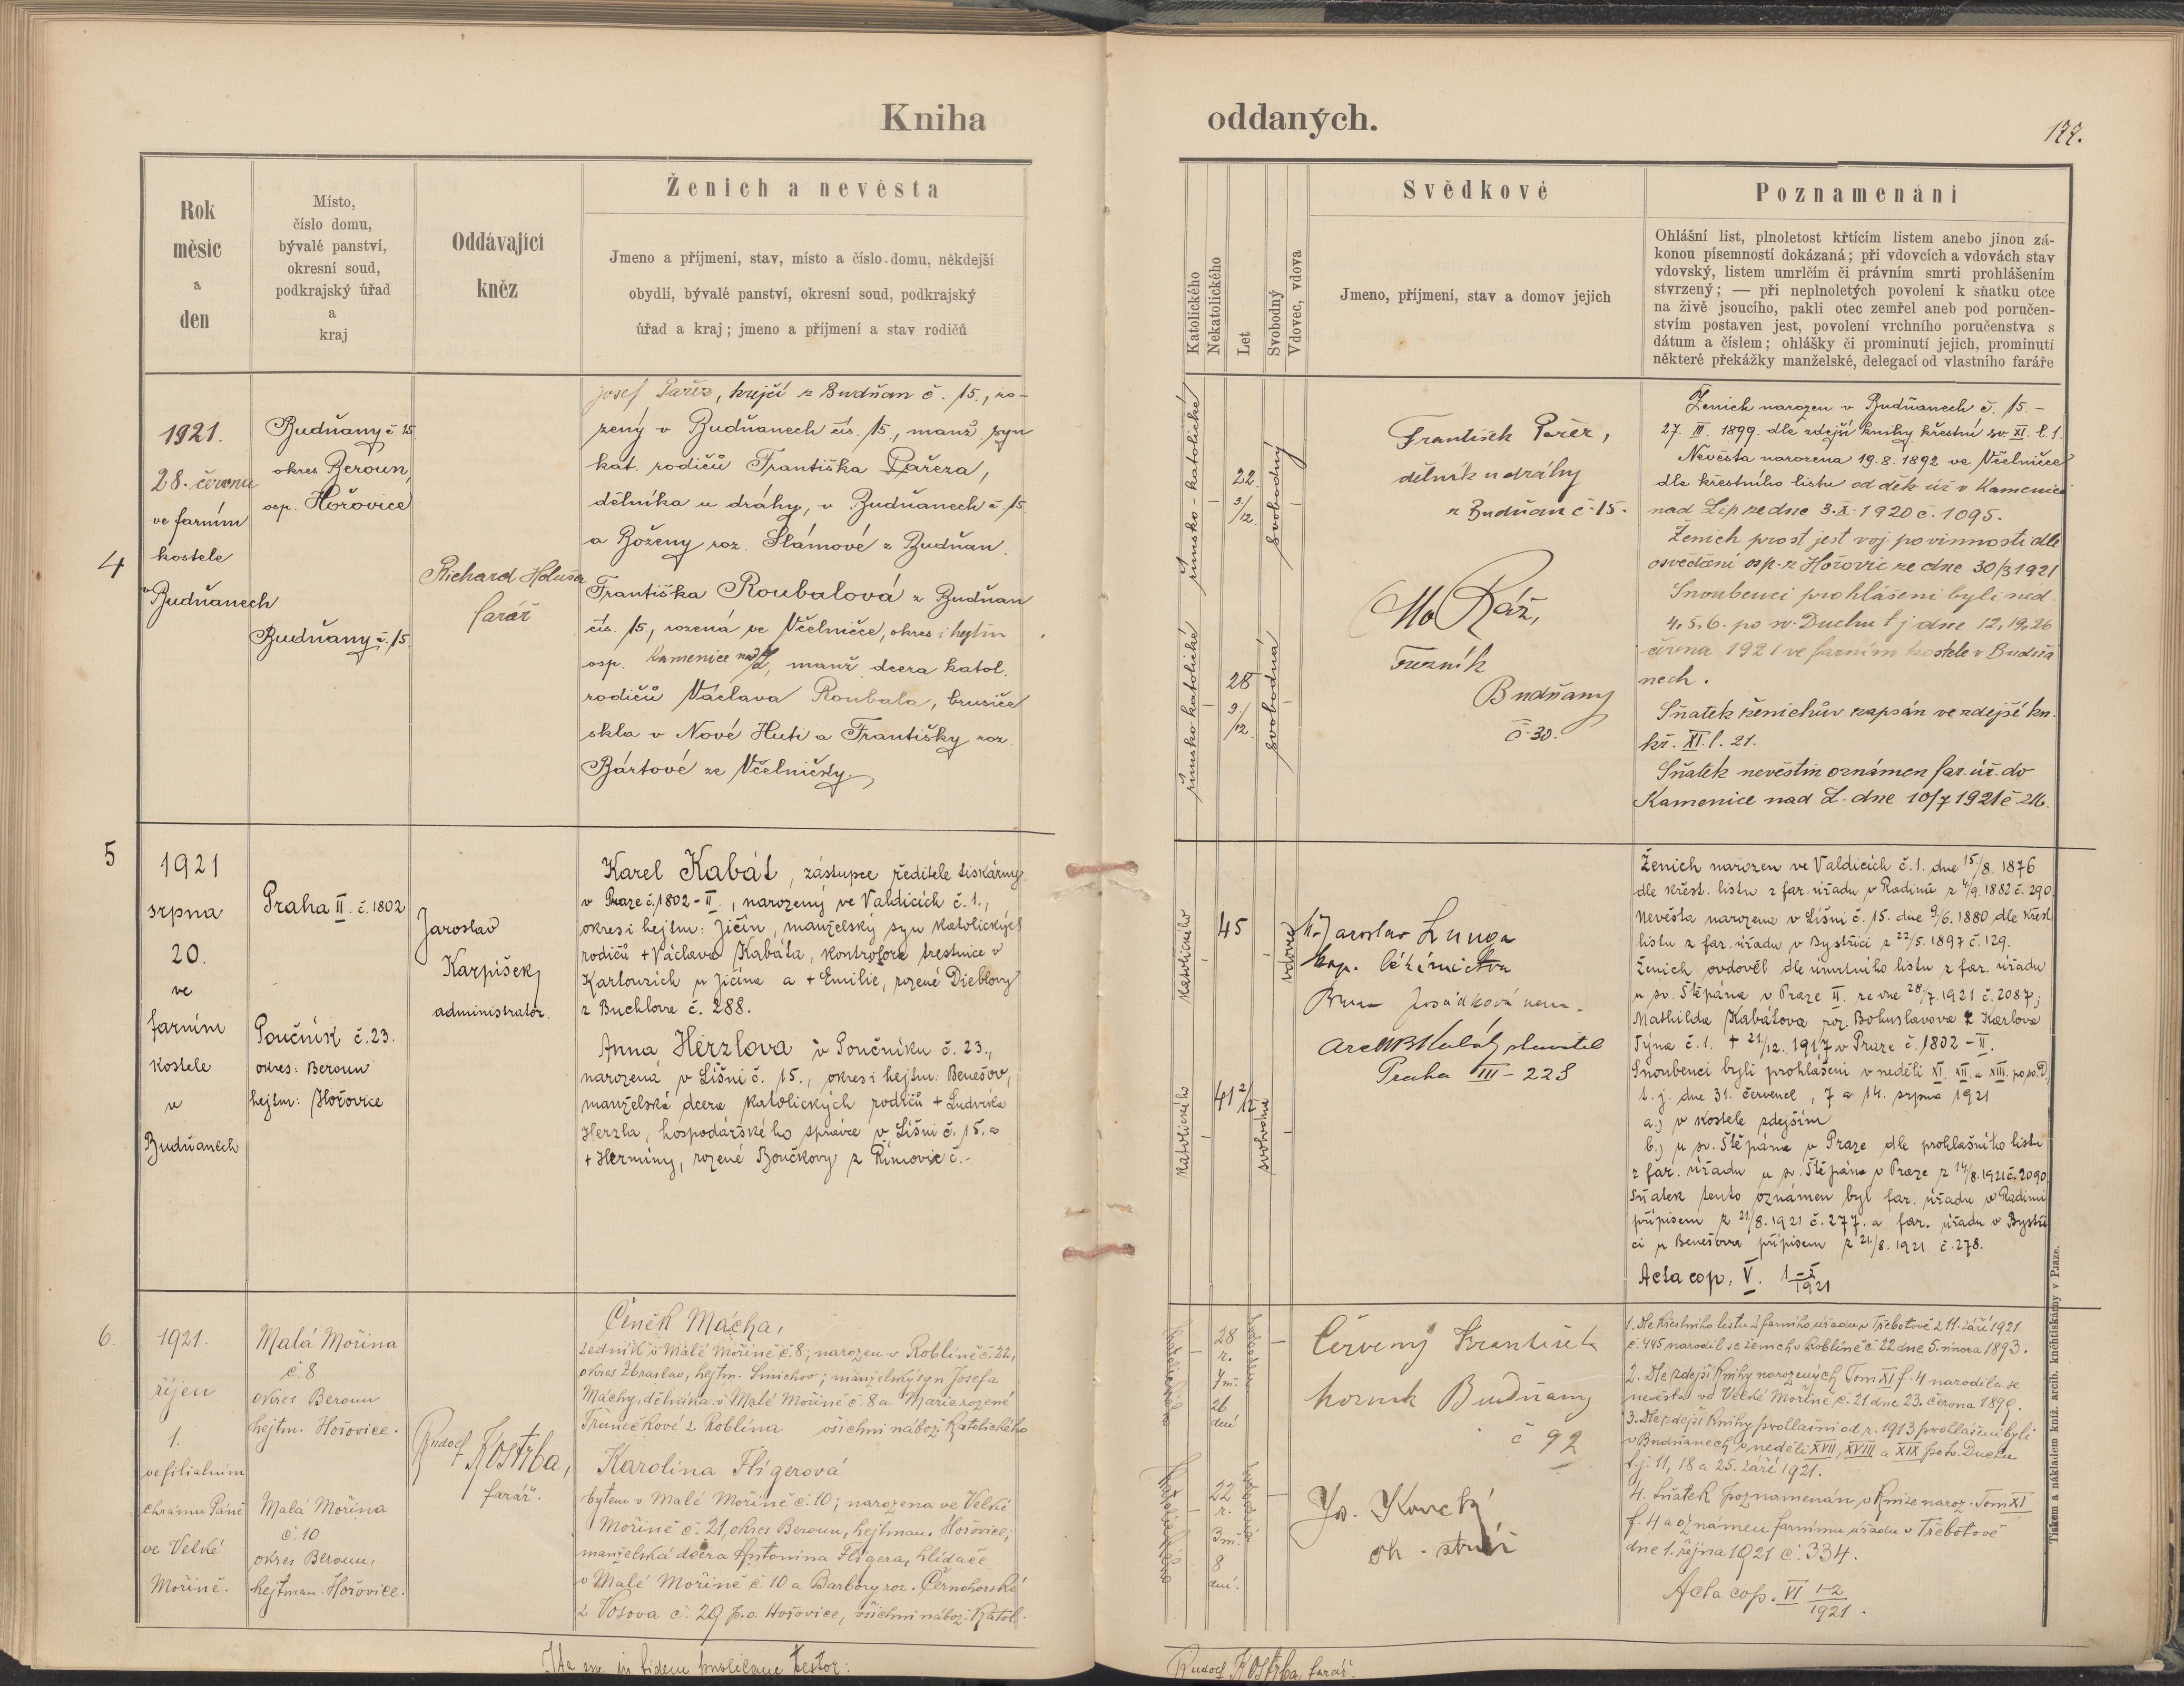 Kniha
oddaných.
177.
Rok
měsíc
a
den
Místo,
číslo domu,
bývalé panství,
okresní soud,
podkrajský úřad
a
kraj
Oddávající
kněz
Ženich a nevěsta
Jmeno a příjmení, stav, místo a číslo domu, někdejší
obydlí, bývalé panství, okresní soud, podkrajský
úřad a kraj; jmeno a příjmení a stav rodičů
Katolického
Nekatolického
Let
Svobodný
Vdovec, vdova
Svědkové
Jmeno, příjmení, stav a domov jejich
Poznamenání
Ohlášní list, plnoletost křtícím listem anebo jinou zá-
konou písemností dokázaná; při vdovcích a vdovách stav
vdovský, listem umrlčím či právním smrti prohlášením
stvrzený; — při neplnoletých povolení k sňatku otce
na živě jsoucího, pakli otec zemřel aneb pod poručen-
stvím postaven jest, povolení vrchního poručenstva s
dátum a číslem; ohlášky či prominutí jejich, prominutí
některé překážky manželské, delegací od vlastního faráře
4
1921.
28. června
ve farním
kostele
v Budňanech
Budňany č. 15
okres Beroun,
osp. Hořovice
Budňany č. 15.
Richard Holuša
farář
Josef Pařez, krejčí z Budňan č. 15., ro-
zený v Budňanech čís. 15., manž. syn
kat. rodičů Františka Pařeza,
dělníka u dráhy, v Budňanech č. 15
a Boženy roz. Slámové z Budňan.
Františka Roubalová z Budňan
čís. 15., rozená ve Včelničce, okres i hejtm
osp. Kamenice nad L, manž. dcera katol.
rodičů Václava Roubala, brusiče
skla v Nové Huti a Františky roz.
Bártové ze Včelničky.
římsko-katolické
22
3/12
svobodný
římsko katolické
28
9/12
svobodná
František Pařez,
dělník u dráhy
z Budňan č. 15.
Ráž,
Řezník
Budňany
č. 30.
Ženich narozen v Budňanech č. 15. -
27. III. 1899. dle zdejší knihy křestní sv. XI. l. 1.
Nevěsta narozena 19. 8. 1892 ve Včelničce
dle křestního listu od děk. úř. v Kamenici
nad Lip. ze dne 3. X. 1920 č. 1095.
Ženich prost jest voj. povinnosti dle
osvědčení osp. z Hořovic ze dne 30/3 1921
Snoubenci prohlášeni byli ned.
4. 5. 6. po sv. Duchu t. j. dne 12, 19, 26
června 1921 ve farním kostele v Budňa
nech.
Sňatek ženichův zapsán ve zdejší kn.
kř. XI. l. 21.
Sňatek nevěstin oznámen far. úř. do
Kamenice nad L. dne 10/7 1921 č. 216.
5
1921
srpna
20.
ve
farním
kostele
v
Budňanech
Praha II. č. 1802
Poučník č. 23.
okres: Beroun
hejtm: Hořovice
Jaroslav
Karpíšek,
administrátor.
Karel Kabát, zástupce ředitele tiskárny
v Praze č. 1802-II., narozený ve Valdicích č. 1.,
okres i hejtm: Jičín, manželský syn katolických
rodičů + Václava Kabáta, kontrolora trestnice v
Kartouzích u Jičína a + Emilie, rozené Dieblovy
z Buchlova č. 288.
Anna Herzlova v Poučníku č. 23.,
narozená v Líšni č. 15., okres i hejtm: Benešov,
manželská dcera katolických rodičů + Ludvíka
Herzla, hospodářského správce v Líšni č. 15. a
+ Hermíny, rozené Boučkovy z Římovic č. -
Katolického
45
vdovec
Katolického
41 2/12
svobodná
Jaroslav
Praha III - 228
Ženich narozen ve Valdicích č. 1. dne 15/8. 1876
dle křest. listu z far. úřadu v Radimi z 4/9. 1882 č. 290
Nevěsta narozena v Líšni č. 15. dne 9/6. 1880 dle křest.
listu z far. úřadu v Bystřici z 22/5. 1897 č. 129.
Ženich ovdověl dle úmrtního listu z far. úřadu
u sv. Štěpána v Praze II. ze dne 28/7. 1921 č. 2087;
Mathilda Kabátova roz. Bohuslavova z Karlova
Týna č. 1. + 21/12. 1917 v Praze č. 1802-II.
Snoubenci byli prohlášeni v neděli XI. XII. a XIII. po sv. D.
t. j. dne 31. července, 7 a 14. srpna 1921
a.) v kostele zdejším
b.) u sv. Štěpána v Praze dle prohlašního listu
z far. úřadu u sv. Štěpána v Praze z 14/8. 1921 č. 2090.
Sňatek tento oznámen byl far. úřadu v Radimi
přípisem z 21/8. 1921 č. 277. a far. úřadu v Bystři
ci u Benešova přípisem z 21/8. 1921 č. 278.
Acta cop. V. 1-5/1921
6.
1921.
říjen
1.
ve filialním
chrámu Páně
ve Velké
Mořině.
Malá Mořina
č. 8
okres Beroun
hejtm. Hořovice.
Malá Mořina
č. 10
okres Beroun,
hejtman. Hořovice.
Rudolf Kostrba,
farář.
Čeněk Mácha,
zedník v Malé Mořině č. 8; narozen v Roblíně č. 22,
okres Zbraslav, hejtm. Smíchov; manželský syn Josefa
Máchy, dělníka v Malé Mořině č. 8 a Marie rozené
Truněčkové z Roblína všichni nábož. katolického
Karolina Flígerová
bytem v Malé Mořině č. 10; narozena ve Velké
Mořině č. 21, okres Beroun, hejtman. Hořovice;
manželská dcera Antonína Flígera, hlídače
v Malé Mořině č. 10 a Barbory roz. Černohorské
z Vosova č. 29 p. o. Hořovice, všichni nábož. katol.
katolického
28
r.
7 m.
26
dní
katolického
22
r.
3 m.
8
dní.
Červený František
horník Budňany
č 92
1. Dle křestního listu z farního úřadu v Třebotově z 11. září 1921
č. 445 narodil se ženich v Roblíně č. 22 dne 5. února 1893.
2. Dle zdejší knihy narozených Tom XI f. 4 narodila se
nevěsta ve Velké Mořině č. 21 dne 23. června 1899.
3. Dle zdejší knihy prohlášní od r. 1913 prohlášeni byli
v Budňanech v neděli XVII, XVIII a XIX po sv. Duchu
t. j. 11, 18 a 25. září 1921.
4. Sňatek poznamenán v knize naroz. Tom XI
f. 4 a oznámen farnímu úřadu v Třebotově
dne 1. října 1921 č. 334.
Acta cop. VI 1-2/1921.
Tiskem a nákladem kníž. arcib. knihtiskárny v Praze.
Ita in fidem publicam testor:
Rudolf Kostrba, farář.